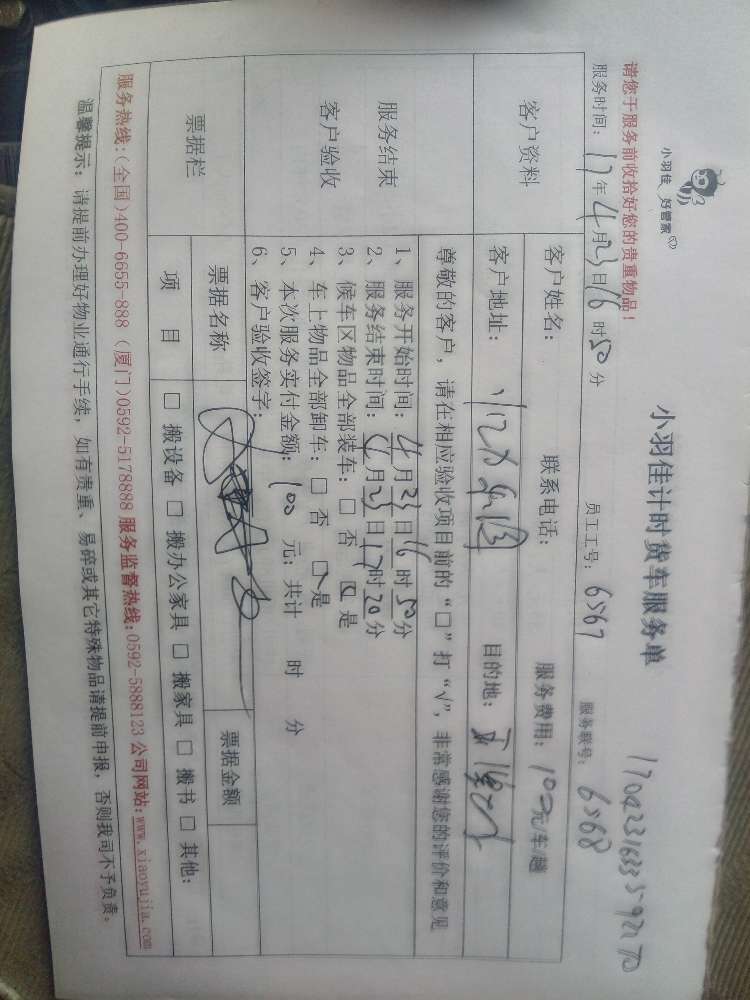 小羽佳 好管家
小羽佳计时货车服务单
请您于服务前收拾好您的贵重物品！
服务时间：17年4月23日16时50分 员工工号：6567 服务联号：6568
客户资料
客户姓名： 联系电话： 服务费用：100元/车/趟
客户地址： 目的地：
尊敬的客户，请在相应验收项目前的“□”打“√”，非常感谢您的评价和意见
服务结束
客户验收
1、服务开始时间：4月23日16时50分
2、服务结束时间：4月23日17时20分
3、候车区物品全部装车：□ 否 ☑ 是
4、车上物品全部卸车：□ 否 ☑ 是
5、本次服务实付金额：100 元；共计 时 分
6、客户验收签字：
票据栏
票据名称 票据金额
项 目 □ 搬设备 □ 搬办公家具 □ 搬家具 □ 搬书 □ 其他：
服务热线：(全国)400-6655-888 (厦门)0592-5178888 服务监督热线：0592-5888123 公司网站：www.xiaoyujia.com
温馨提示：请提前办理好物业通行手续，如有贵重、易碎或其它特殊物品请提前申报，否则我司不予负责。